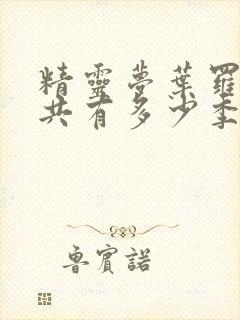 精靈夢葉羅
共有多少季
魯賓諾